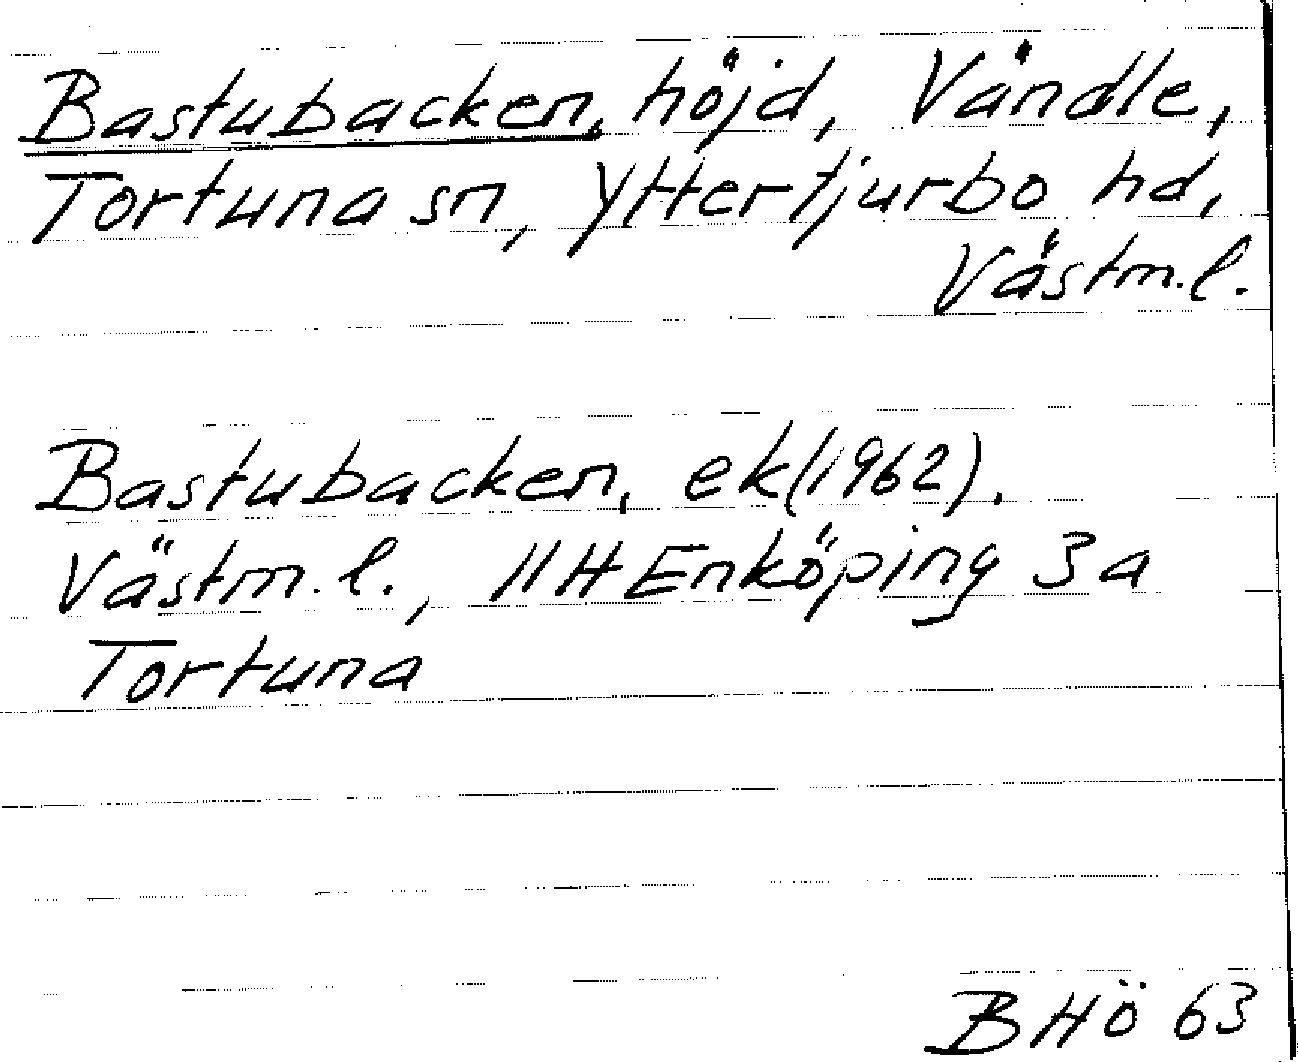 Bastubacken, höjd, Vändle,
Tortuna sn, Yttertjurbo hd,
Västm.l.
Bastubacken, ek(1962).
Västm.l., 11H Enköping 3a
Tortuna
BHÖ 63